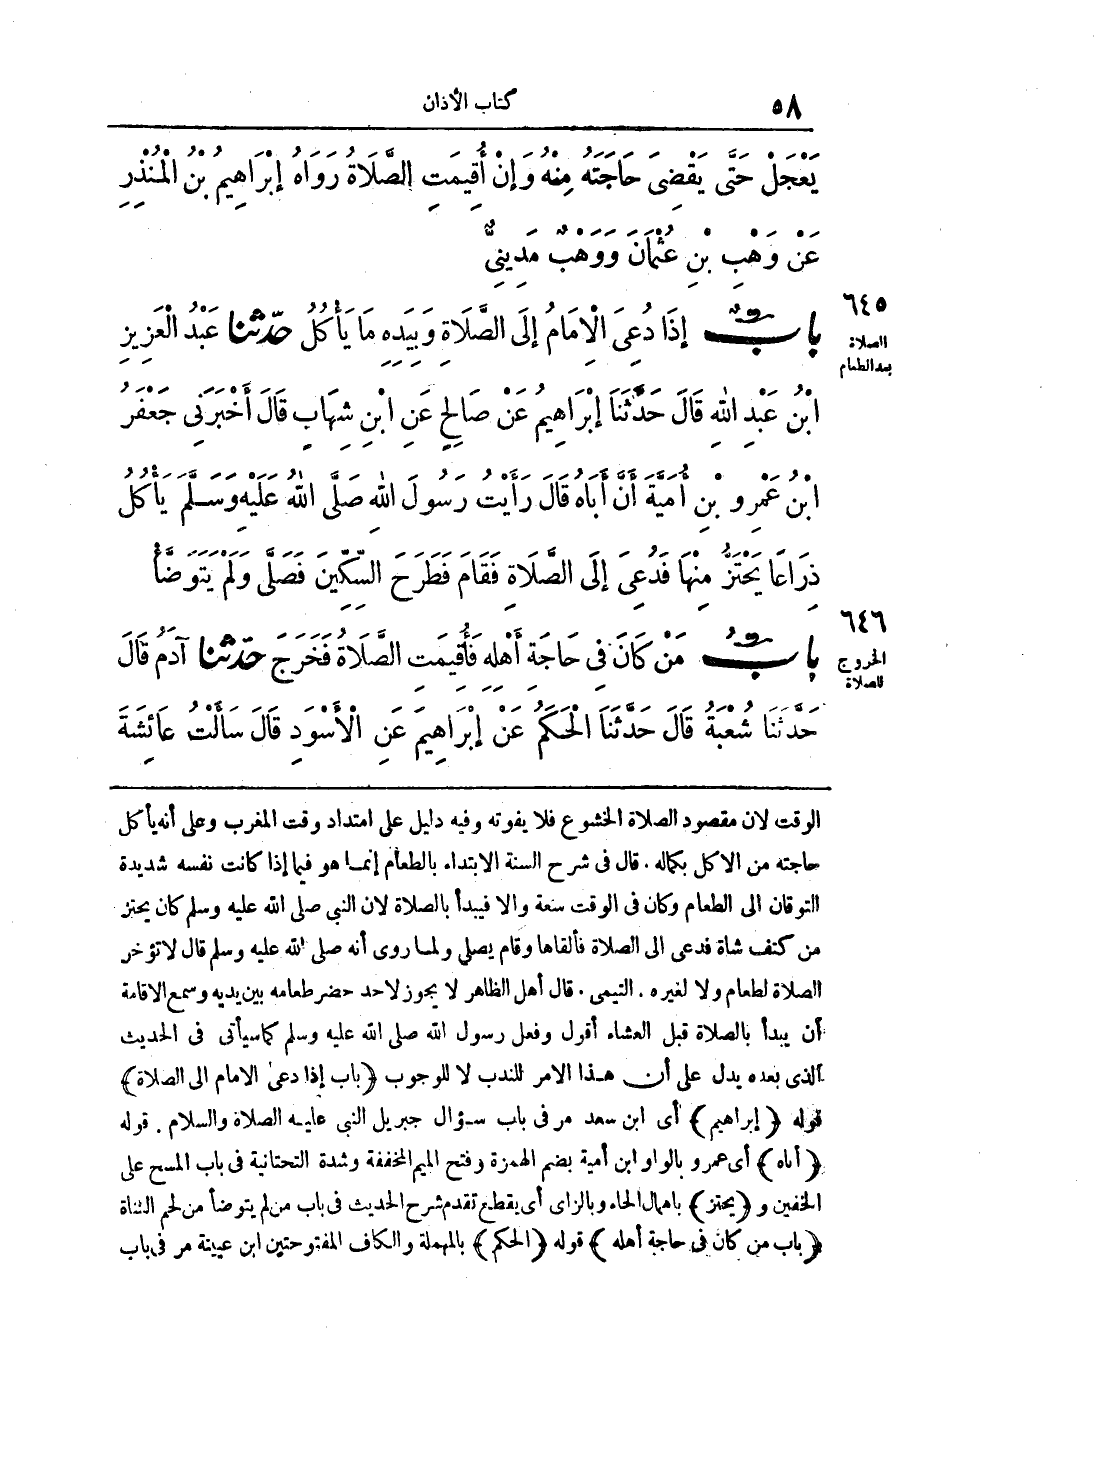 ٥٨
كتاب الأذان
يَعْجَلْ حَتَّى يَقْضِىَ حَاجَتَهُ مِنْهُ وَإِنْ أُقِيمَتِ الصَّلَاةُ رَوَاهُ إِبْرَاهِيمُ بْنُ الْمُنْذِرِ
عَنْ وَهْبِ بْنِ عُثْمَانَ وَوَهْبٌ مَدِينِىٌّ
٦٤٥
الصلاة
بعد الطعام
بابٌ إِذَا دُعِىَ الْإِمَامُ إِلَى الصَّلَاةِ وَبِيَدِهِ مَا يَأْكُلُ حدّثنا عَبْدُ الْعَزِيزِ
ابْنُ عَبْدِ اللهِ قَالَ حَدَّثَنَا إِبْرَاهِيمُ عَنْ صَالِحٍ عَنِ ابْنِ شِهَابٍ قَالَ أَخْبَرَنِى جَعْفَرُ
ابْنُ عَمْرِو بْنِ أُمَيَّةَ أَنَّ أَبَاهُ قَالَ رَأَيْتُ رَسُولَ اللهِ صَلَّى اللهُ عَلَيْهِ وَسَلَّمَ يَأْكُلُ
ذِرَاعًا يَحْتَزُّ مِنْهَا فَدُعِىَ إِلَى الصَّلَاةِ فَقَامَ فَطَرَحَ السِّكِّينَ فَصَلَّى وَلَمْ يَتَوَضَّأْ
٦٤٦
الخروج
للصلاة
بابُ مَنْ كَانَ فِى حَاجَةِ أَهْلِهِ فَأُقِيمَتِ الصَّلَاةُ فَخَرَجَ حدّثنا آدَمُ قَالَ
حَدَّثَنَا شُعْبَةُ قَالَ حَدَّثَنَا الْحَكَمُ عَنْ إِبْرَاهِيمَ عَنِ الْأَسْوَدِ قَالَ سَأَلْتُ عَائِشَةَ
الوقت لان مقصود الصلاة الخشوع فلا يفوته وفيه دليل على امتداد وقت المغرب وعلى أنه يأكل
حاجته من الاكل بكماله . قال فى شرح السنة الابتداء بالطعام إنما هو فيما إذا كانت نفسه شديدة
التوقان الى الطعام وكان فى الوقت سعة والا فيبدأ بالصلاة لان النبى صلى الله عليه وسلم كان يحتز
من كتف شاة فدعى الى الصلاة فألقاها وقام يصلي ولما روى أنه صلى الله عليه وسلم قال لاتؤخر
الصلاة لطعام ولا لغيره . التيمى . قال أهل الظاهر لا يجوز لاحد حضر طعامه بين يديه وسمع الاقامة
أن يبدأ بالصلاة قبل العشاء أقول وفعل رسول الله صلى الله عليه وسلم كما سيأتى فى الحديث
الذى بعده يدل على أن هذا الامر للندب لا للوجوب ﴿باب إذا دعى الامام الى الصلاة﴾
قوله ﴿إبراهيم﴾ أى ابن سعد مر فى باب سؤال جبريل النبى عليه الصلاة والسلام . قوله
﴿أباه﴾ أى عمرو بالواو ابن أمية بضم الهمزة وفتح الميم المخففة وشدة التحتانية فى باب المسح على
الخفين و ﴿يحتز﴾ باهمال الحاء وبالزاى أى يقطع تقدم شرح الحديث فى باب من لم يتوضأ من لحم الشاة
﴿باب من كان فى حاجة أهله﴾ قوله ﴿الحكم﴾ بالمهملة والكاف المفتوحتين ابن عيينة مر فى باب